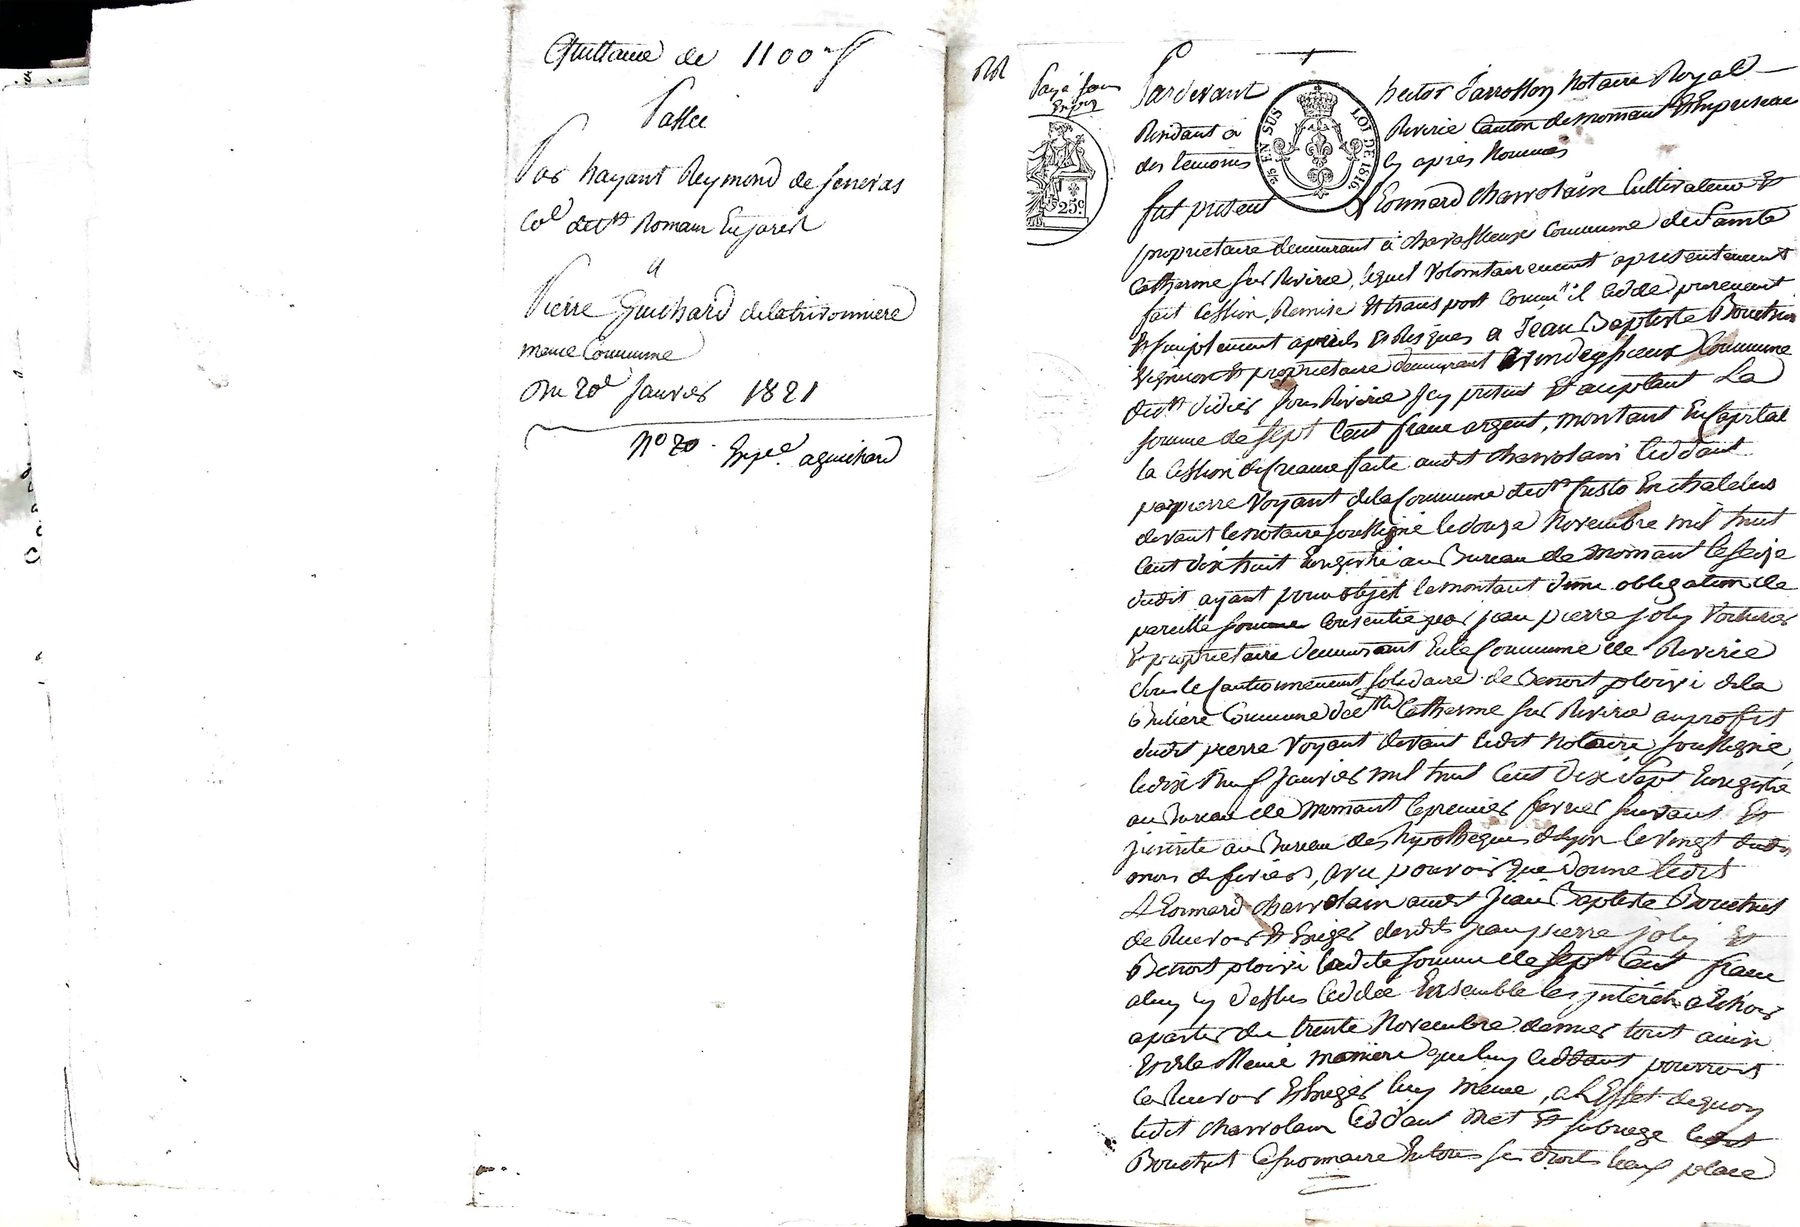 Quittance de 1100 f
Passée
Par hayant Reymond de senevas
Co.e de St Romain En jarest
a
Pierre Guichard delatrivonniere
meme Commune
Du 20e janvier 1821
No 20. Exp.ée a guichard
Pardevant hector Jarrosson Notaire Royal
Residant à Riverie Canton de mornant Et En presence
des temoins cy apres Nommés
fut present Leonnard charvolain Cultivateur Et
proprietaire demeurant à Commune de Sainte
Catherine sur Riverie, lequel Volontairement a presentement
fait Cession, Remise Et transport comm'il Cedde purement
Et simplement à perils Et Risques a Jean Baptiste Bouchut
vigneron Et proprietaire demeurant Commune
de St didier sous Riverie jcy present Et acceptant La
somme de sept Cent franc argent, montant En Capital
la Cession de creance faite audit charvolain Ceddant
par pierre Voyant de la Commune de St Cristo En chatelus
devant le notaire soussigné le douze Novembre mil huit
Cent dix huit Enregistré au Bureau de mornant le seize
dudit ayant pour objet le montant d'une obligation de
pareille somme Consentie par jean pierre joly Voiturier
Et proprietaire demeurant En la Commune de Riverie
sous le Cautionnement solidaire de Benoit ploivi de la
Commune de Ste Catherine sur Riverie au profit
dudit pierre Voyant devant ledit Notaire soussigné
le dix Neuf janvier mil huit Cent dix sept Enregistré
au Bureau de Mornant le premier fevrier suivant Et
jnscrite au Bureau des hypotheques de lyon le vingt dudit
mois de fevrier, avec pouvoir que donne ledit
Leonnard charvolain audit Jean Baptiste Bouchut
de Recevoir Et Exiger desdits jean pierre joly Et
Benoit ploivi ladite somme de sept Cent franc
a luy cy dessus Ceddée Ensemble les jnterets a Echoir
a partir du trente Novembre dernier tout ainsi
Et de la Meme maniere que luy Ceddant pourroit
le Recevoir Et Exiger luy meme, a L'Effet de quoy
ledit charvolain Ceddant met Et subroge ledit
Bouchut Cessionnaire En tous ses droits lieux place
EN SUS
LOI DE 1816
25c